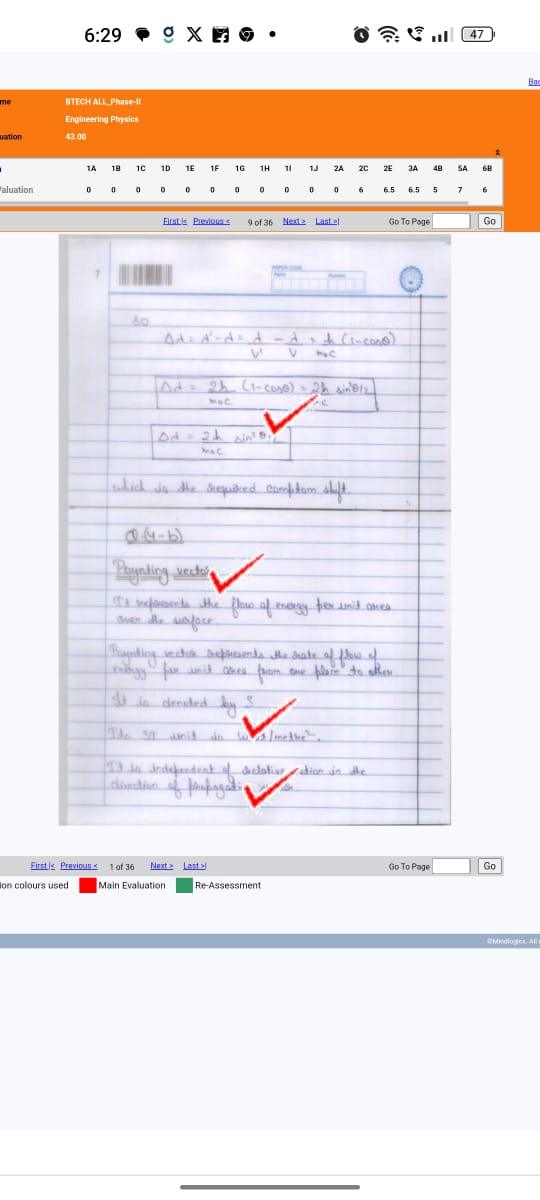 6:29
47
Bac
me
BTECH ALL_Phase-II
Engineering Physics
uation
43.00
1A 1B 1C 1D 1E 1F 1G 1H 1I 1J 2A 2C 2E 3A 4B 5A 6B
aluation 0 0 0 0 0 0 0 0 0 0 0 6 6.5 6.5 5 7 6
First |< Previous < 9 of 36 Next > Last >| Go To Page Go
7
PAPER CODE
so
Δλ = λ' - λ = - = h (1-cosθ)
V' V m₀C
Δλ = 2h (1-cosθ) = 2h sin²θ/2
m₀C
Δλ = 2h sin²θ/2
m₀C
which is the required comptom shift.
Q.(4-b)
Poynting vector
It represents the flow of energy per unit area
over the surface
Poynting vector represents the rate of flow of
energy per unit area from one place to other.
It is denoted by S
Its SI unit is /metre².
It is independent of relative in the
direction of
First |< Previous < 1 of 36 Next > Last >| Go To Page Go
ion colours used Main Evaluation Re-Assessment
©Mindlogicx. All